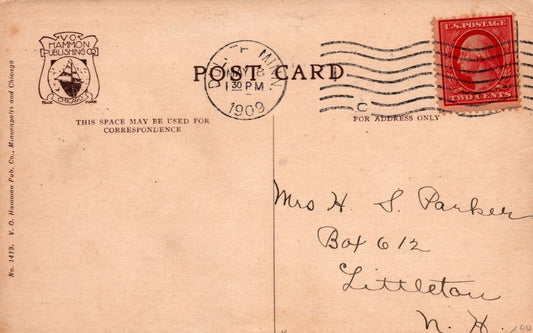 V. O.
HAMMON
PUBLISHING CO.
CHICAGO
TRADE MARK
POST CARD
DULUTH, MINN
130 PM
1909
U.S. POSTAGE
TWO CENTS
THIS SPACE MAY BE USED FOR
CORRESPONDENCE
FOR ADDRESS ONLY
No. 1419. V. O. Hammon Pub. Co., Minneapolis and Chicago
Mrs H. S. Parker
Box 612
Littleton
N. H.